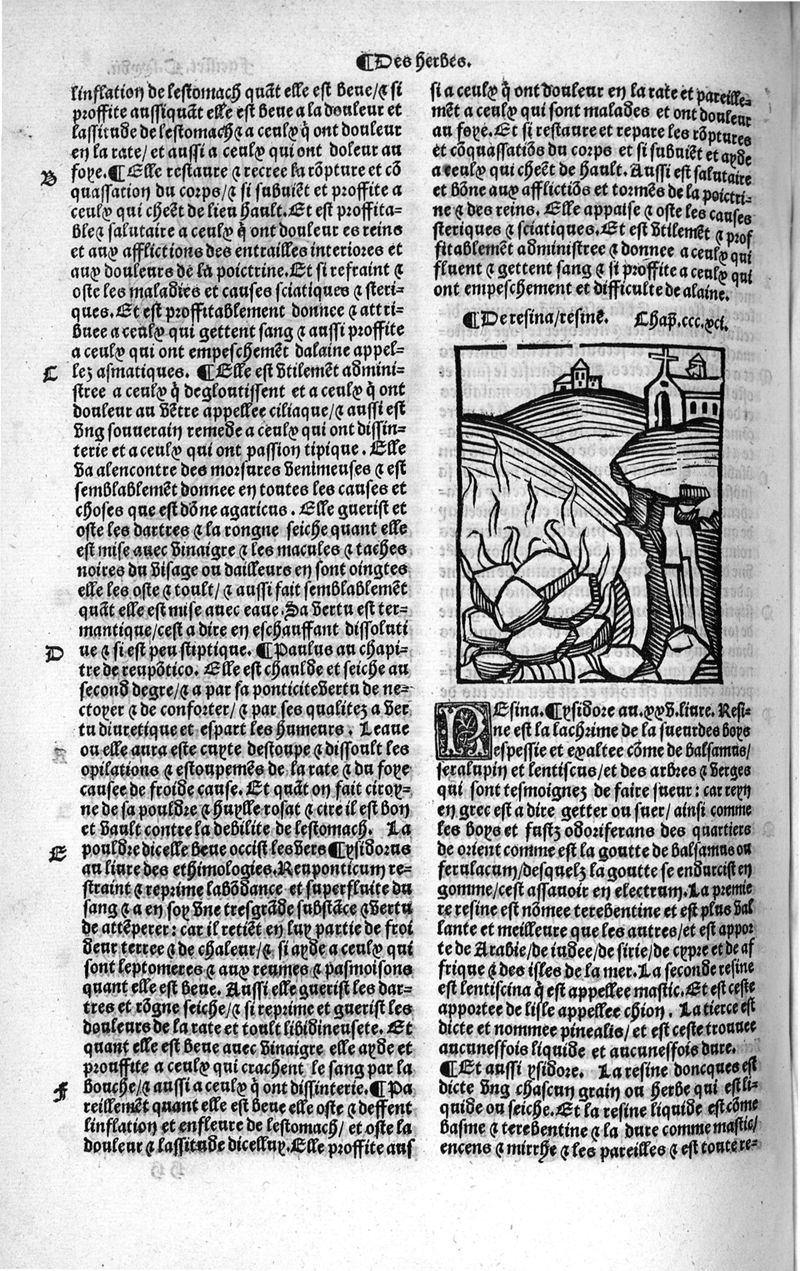 ¶Des herbes.
linflation de lestomach quāt elle est beue/⁊ si
proffite aussi quāt elle est beue a la douleur et
lassitude de lestomach ⁊ a ceulx q̄ ont douleur
en la rate/ et aussi a ceulx qui ont doleur au
B
foye. ¶Elle restaure ⁊ recree la rōpture et cō
quassation du corps/⁊ si subuiēt et proffite a
ceulx qui cheēt de lieu hault. Et est proffita-
ble ⁊ salutaire a ceulx q̄ ont douleur es reins
et aux afflictions des entrailles interiores et
aux douleurs de la poictrine. Et si refraint ⁊
oste les maladies et causes sciatiques ⁊ steri-
ques. Et est proffitablement donnee ⁊ attri-
buee a ceulx qui gettent sang ⁊ aussi proffite
a ceulx qui ont empeschemēt dalaine appel-
C
lez asmatiques. ¶Elle est vtilemēt admini-
stree a ceulx q̄ desgloutissent et a ceulx q̄ ont
douleur au vētre appellee ciliaque/⁊ aussi est
vng souuerain remede a ceulx qui ont dissin-
terie et a ceulx qui ont passion tipique. Elle
va alencontre des morsures venimeuses ⁊ est
semblablemēt donnee en toutes les causes et
choses que est dōne agaricus. Elle guerist et
oste les dartres ⁊ la rongne seiche quant elle
est mise auec vinaigre ⁊ les macules ⁊ taches
noires du visage ou dailleurs en sont oingtes
elle les oste ⁊ toult/ ⁊ aussi fait semblablemēt
quāt elle est mise auec eaue. Sa vertu est ter-
mantique/cest a dire en eschauffant dissoluti
D
ue ⁊ si est peu stiptique. ¶Paulus au chapi-
tre de reupōtico. Elle est chaulde et seiche au
second degre/⁊ a par sa ponticite vertu de ne-
ctoyer ⁊ de conforter/ ⁊ par ses qualitez a ver
tu diuretique et espart les humeurs. Leaue
ou elle aura este cuyte destoupe ⁊ dissoult les
opilations ⁊ estoupemēs de la rate ⁊ du foye
causee de froide cause. Et quāt on fait ciroy-
ne de sa pouldre ⁊ huylle rosat ⁊ cire il est bon
et vault contre la debilite de lestomach. La
E
pouldre dicelle beue occist les vers ¶ysidorus
au liure des ethimologies. Reuponticum re-
straint ⁊ reprime labōdance et superfluite du
sang ⁊ a en soy vne tresgrāde substāce ⁊ vertu
de attēperer: car il retiēt en luy partie de froi
deur terree ⁊ de chaleur/⁊ si ayde a ceulx qui
sont leptomeres ⁊ aux reumes ⁊ pasmoisons
quant elle est beue. Aussi elle guerist les dar-
tres et rōgne seiche/⁊ si reprime et guerist les
douleurs de la rate et toult libidineusete. Et
quant elle est beue auec vinaigre elle ayde et
prouffite a ceulx qui crachent le sang par la
F
bouche/⁊ aussi a ceulx q̄ ont dissinterie. ¶Pa
reillemēt quant elle est beue elle oste ⁊ deffent
linflation et enfleure de lestomach/ et oste la
douleur ⁊ lassitude dicelluy. Elle proffite aus
si a ceulx q̄ ont douleur en la rate et pareille-
mēt a ceulx qui sont malades et ont douleur
au foye. Et si restaure et repare les rōptures
et cōquassatiōs du corps et si subuiēt et ayde
a ceulx qui cheēt de hault. Aussi est salutaire
et bōne aux afflictiōs et tormēs de la poictri-
ne ⁊ des reins. Elle appaise ⁊ oste les causes
steriques ⁊ sciatiques. Et est vtilemēt ⁊ prof
fitablement administree ⁊ donnee a ceulx qui
fluent ⁊ gettent sang ⁊ si proffite a ceulx qui
ont empeschement et difficulte de alaine.
¶De resina/resine. Chap̄. ccc.xci.
REsina. ¶ysidore au .xxv. liure. Resi-
ne est la lachrime de la sueur des boys
espessie et exaltee cōme de balsamus/
feralupin et lentiscus/et des arbres ⁊ verges
qui sont tesmoignez de faire sueur: car reyn
en grec est a dire getter ou suer/ ainsi comme
les boys et fustz odoriferans des quartiers
de orient comme est la goutte de balsamus ou
ferulacum/desquelz la goutte se endurcist en
gomme/cest assauoir en electrum. La premie
re resine est nōmee terebentine et est plus val
lante et meilleure que les autres/et est appor
te de Arabie/de iudee/de sirie/de cypre et de af
frique ⁊ des isles de la mer. La seconde resine
est lentiscina q̄ est appellee mastic. Et est ceste
apportee de lisle appellee chion. La tierce est
dicte et nommee pinealis/ et est ceste trouuee
aucunesfois liquide et aucunesfois dure.
¶Et aussi ysidore. La resine doncques est
dicte vng chascun grain ou herbe qui est li-
quide ou seiche. Et la resine liquide est cōme
basme ⁊ terebentine ⁊ la dure comme mastic/
encens ⁊ mirrhe ⁊ les pareilles ⁊ est toute re-